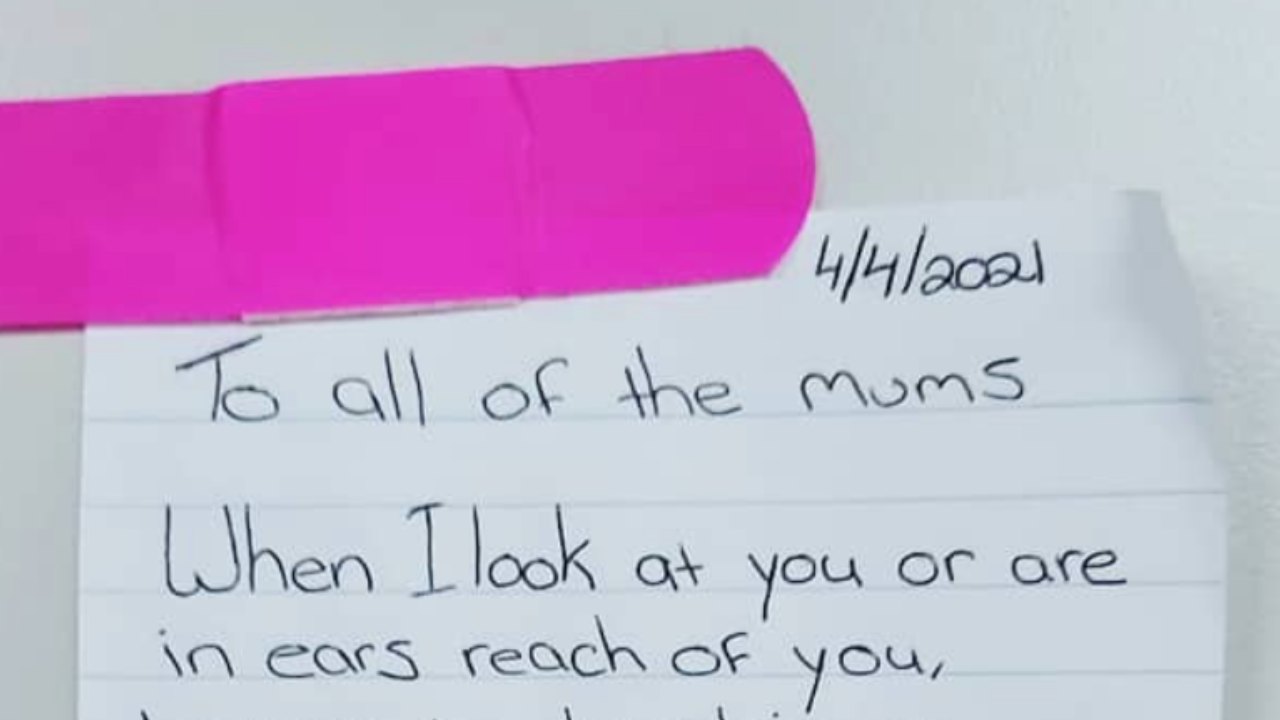 4/4/2021
To all of the mums
When I look at you or are
in ears reach of you,